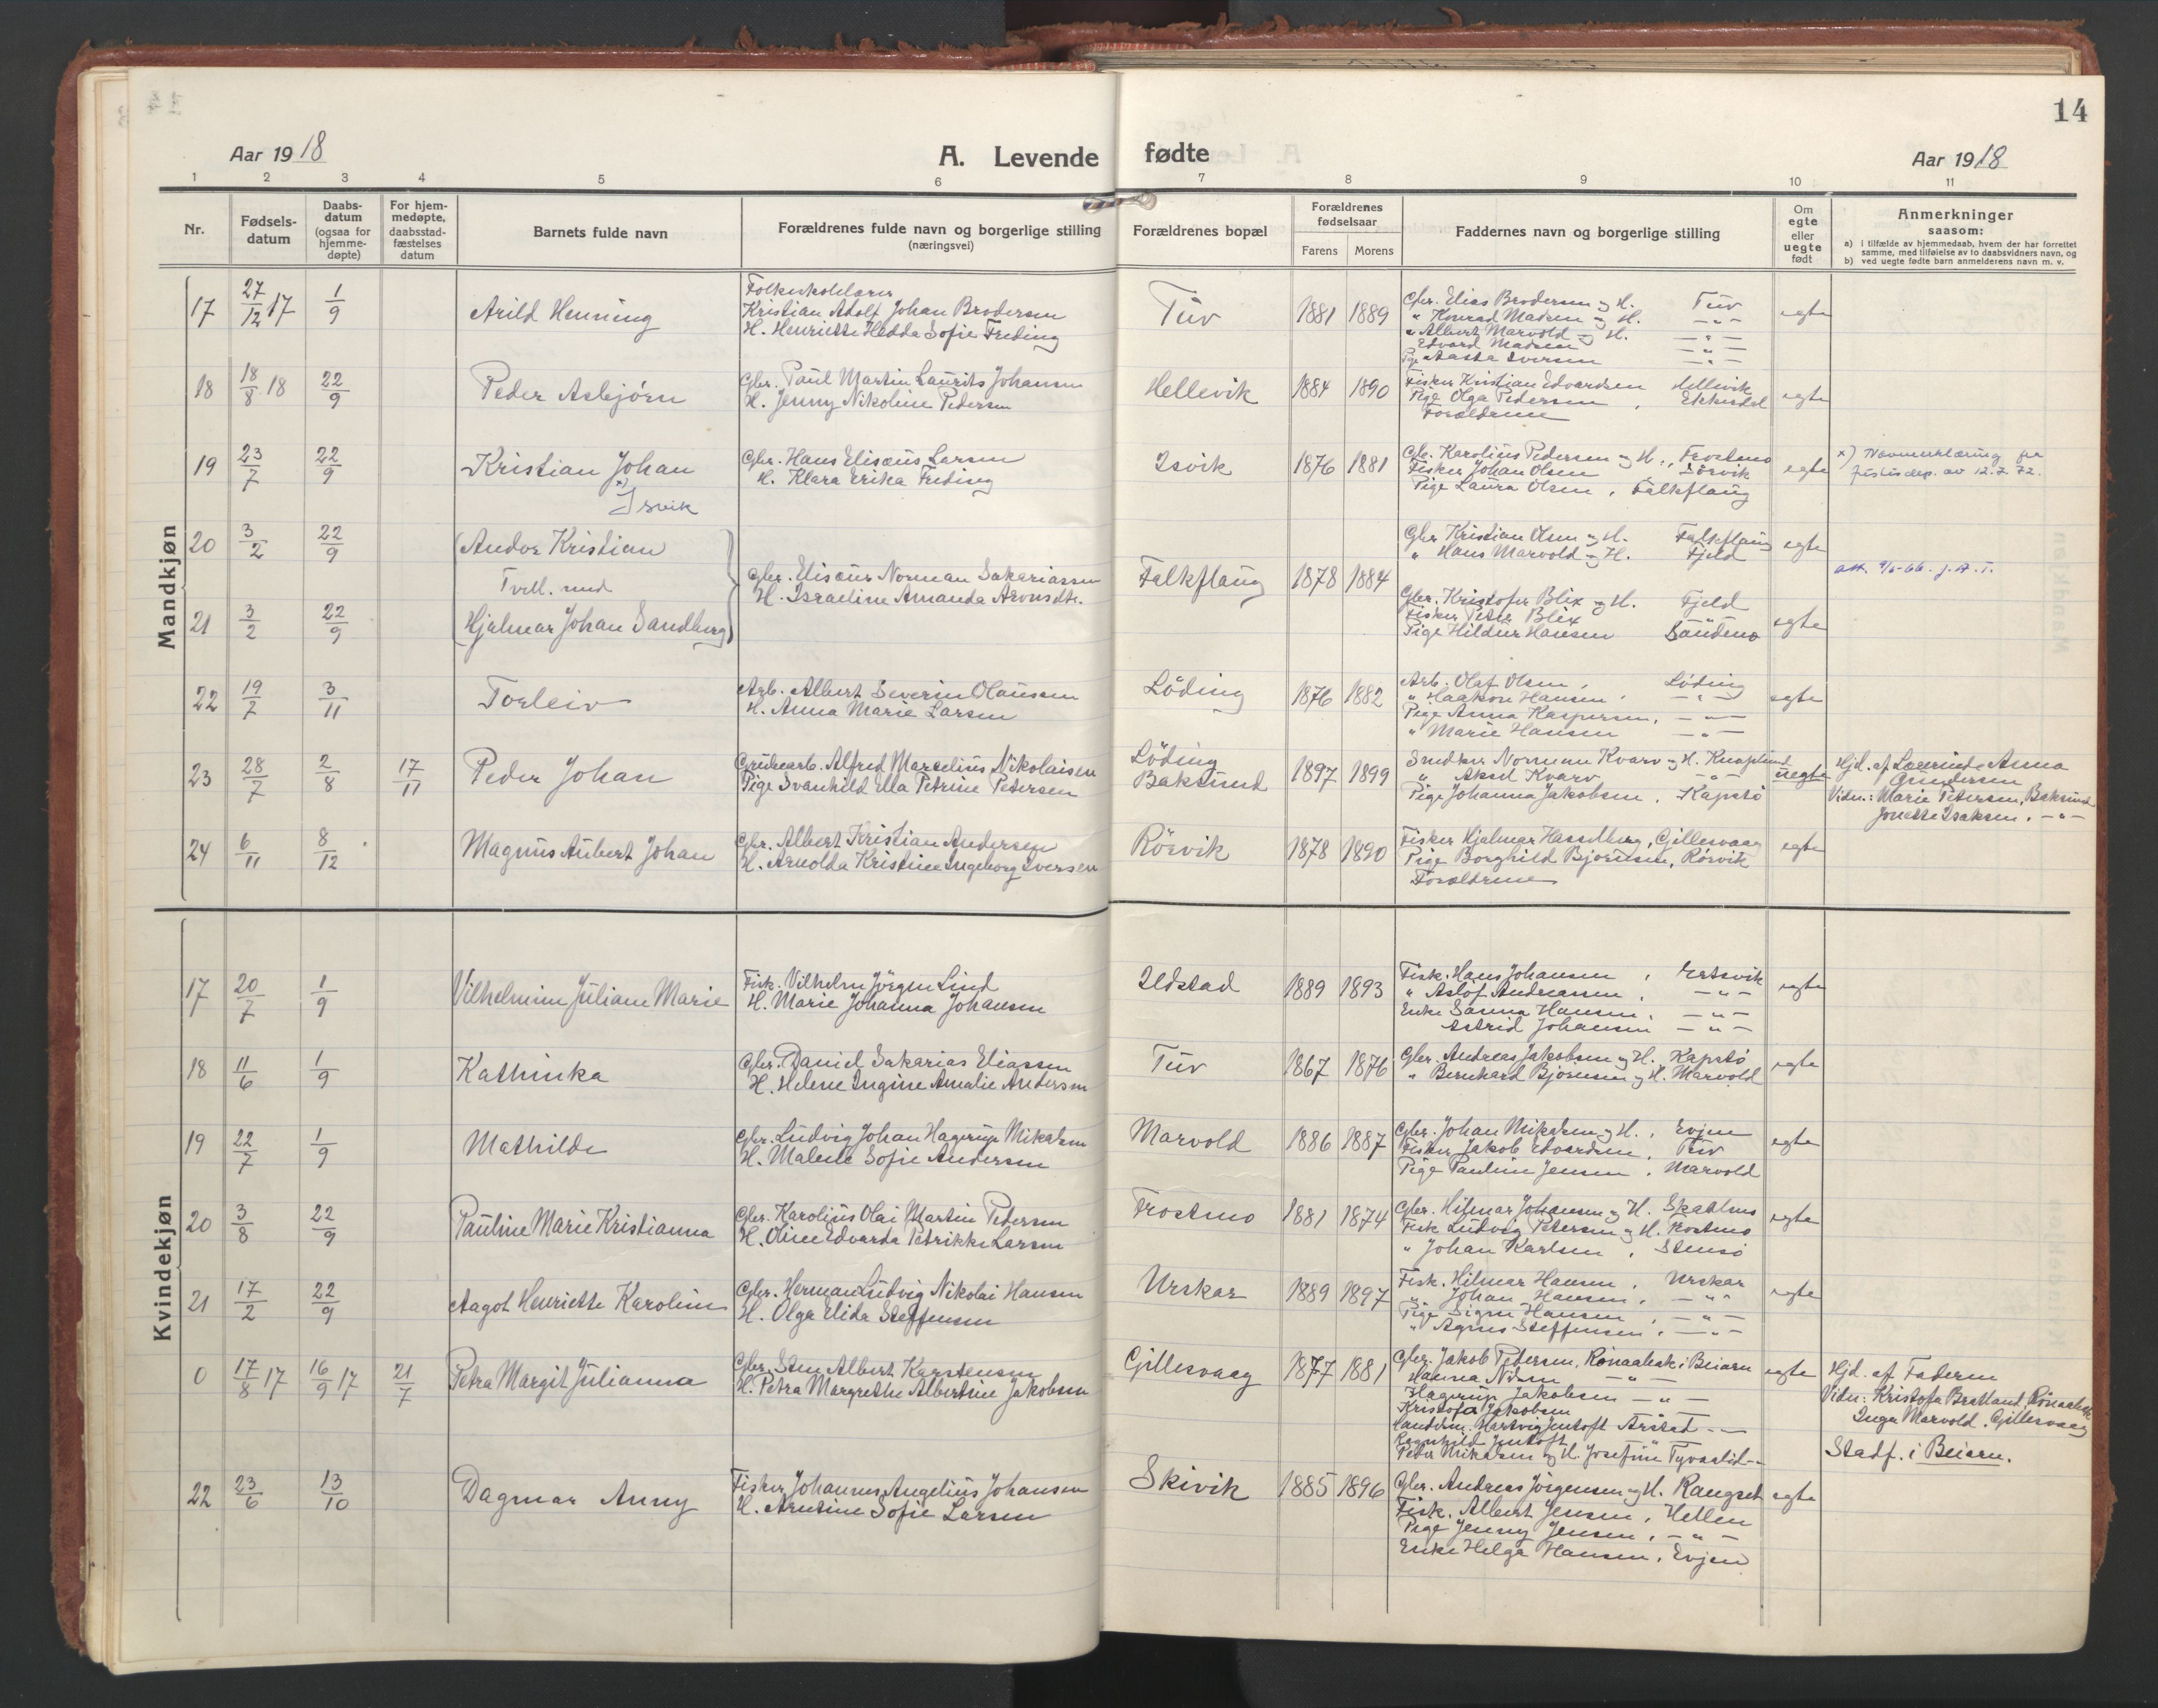 14
Aar 1918
A. Levende fødte
Aar 1918
1 2 3 4 5 6 7 8 9 10 11
Nr.
Fødsels-
datum
Daabs-
datum
(ogsaa for
hjemme-
døpte)
For hjem-
medøpte,
daabsstad-
fæstelses
datum
Barnets fulde navn
Forældrenes fulde navn og borgerlige stilling
(næringsvei)
Forældrenes bopæl
Forældrenes
fødselsaar
Farens Morens
Faddernes navn og borgerlige stilling
Om
egte
eller
uegte
født
Anmerkninger
saasom:
a) i tilfælde av hjemmedaab, hvem der har forrettet
samme, med tilføielse av to daabsvidners navn, og
b) ved uegte fødte barn anmelderens navn m. v.
Mandkjøn
17 27/12 17 1/9 Arild Henning
Kristian Adolf Johan Brodersen
H. Henriette Hedda Sofie Freding
Tuv 1881 1889
Gbr. Elias Brodersen og H. Tuv
" Konrad Madsen og H. -"-
" Albert Marvold og H. -"-
Edvard Madsen -"-
Pige Aasta Iversen -"-
egte
18 18/8 18 22/9 Peder Asbjørn
Gbr. Paul Martin Laurits Johansen
H. Jenny Nikoline Pedersen
Hellevik 1884 1890
Fisker Kristian Edvardsen Hellevik
Pige Olga Pedersen,
Forældrene
egte
19 23/7 22/9 Kristian Johan
x) Isvik
Gbr. Hans Elisæus Larsen
H. Klara Erika Freding
Isvik 1876 1881
Gbr. Karolius Pedersen og H., Frostmo
Fisker Johan Olsen Sörvik
Pige Laura Olsen, Falkflaug
egte
x) Navneerklæring fra
justisdep. av 12.7.72.
20 3/2 22/9 Andor Kristian
Tvill. med
21 3/2 22/9 Hjalmar Johan Sandberg
Gbr. Elisæus Norman Sakariassen
H. Israeline Amanda Aronsdtr.
Falkflaug 1878 1884
Gbr. Kristian Olsen og H. Falkflaug
" Hans Marvold og H. Fjeld
egte
Gbr. Kristofer Blix og H. Fjeld
Fisker Peter Blix -"-
Pige Hildur Hansen Sandmo
egte
22 19/7 3/11 Torleiv
Arb. Albert Severin Olaussen
H. Anna Marie Larsen
Löding 1876 1882
Arb. Olaf Olsen, Löding
" Haakon Hansen, -"-
Pige Anna Kaspersen, -"-
" Marie Hansen -"-
egte
23 28/7 2/8 17/11 Peder Johan
Grubearb. Alfred Marselius Nikolaisen
Pige Svanhild Ella Petrine Petersen
Löding
Baksund 1897 1899
Snedker Norman Kvarv og H. Knaplund
" Aksel Kvarv -"-
Pige Johanna Jakobsen, Kapstö
uegte
Hjd. af Laurinde Anna
Gundersen
Vidn.: Marie Petersen, Baksund
Jonette Isaksen, -"-
24 6/11 8/12 Magnus Aubert Johan
Gbr. Albert Kristian Andersen
H. Arnolda Kristine Ingeborg Iversen
Rörvik 1878 1890
Fisker Hjalmar Hasselberg, Gillesvaag
Pige Borghild Bjørnsen, Rörvik
Forældrene
egte
Kvindekjøn
17 20/7 1/9 Vilhelmine Juliane Marie
Fisk. Vilhelm Jörgen Lind
H. Marie Johanna Johansen
Ildstad 1889 1893
Fisk. Hans Johansen,
" Aslöf Andreassen, -"-
Enke Sanna Hansen, -"-
Astrid Johansen -"-
egte
18 11/6 1/9 Kathinka
Gbr. Daniel Sakarias Eliassen
H. Helene Ingine Amalie Andersen
Tuv 1867 1876
Gbr. Andreas Jakobsen og H. Kapstö
" Bernhard Bjørnsen og H. Marvold
egte
19 22/7 1/9 Mathilde
Gbr. Ludvig Johan Hagerup Mikalsen
H. Malene Sofie Andersen
Marvold 1886 1887
Gbr. Johan Mikalsen og H., Evjen
Fisker Jakob Edvardsen, Tuv
Pige Pauline Jensen, Marvold
egte
20 3/8 22/9 Pauline Marie Kristianna
Gbr. Karolius Olai Martin Pedersen
H. Oline Edvarda Petrikke Larsen
Frostmo 1881 1874
Gbr. Hilmar Johansen og H.
Fisk. Ludvig Petersen og H. Frostmo
" Johan Karlsen, Stensö
egte
21 17/2 22/9 Aagot Henriette Karoline
Gbr. Herman Ludvig Nikolai Hansen
H. Olga Elida Steffensen
Urskar 1889 1897
Fisk. Hilmar Hansen, Urskar
" Johan Hansen, -"-
Pige Signe Hansen, -"-
" Agnes Steffensen, -"-
egte
0 17/8 17 16/9 17 21/7 Petra Margit Julianna
Gbr. Sten Albert Karstensen
H. Petra Margrethe Albertine Jakobsen
Gillesvaag 1877 1881
Gbr. Jakob Pedersen, i Beiarn
Hanna -"-
Hagerup Jakobsen -"-
Kristofa Jakobsen
Hartvig Jentoft Arstad -"-
Ragnhild Jentoft
Peder Mikalsen og H. Josefine
egte
Hjd. af Faderen
Vidn: Kristofa Bratland,
Inga Marvold, Gillesvaag
Stadf. i Beiarn.
22 23/6 13/10 Dagmar Anny
Fisker Johannes Angelius Johansen
H. Arntine Sofie Larsen
Skivik 1885 1896
Gbr. Andreas Jörgensen og H. Rangset
Fisk. Albert Jensen, Hellen
Pige Jenny Jensen, -"-
Enke Helga Hansen, Evjen
egte